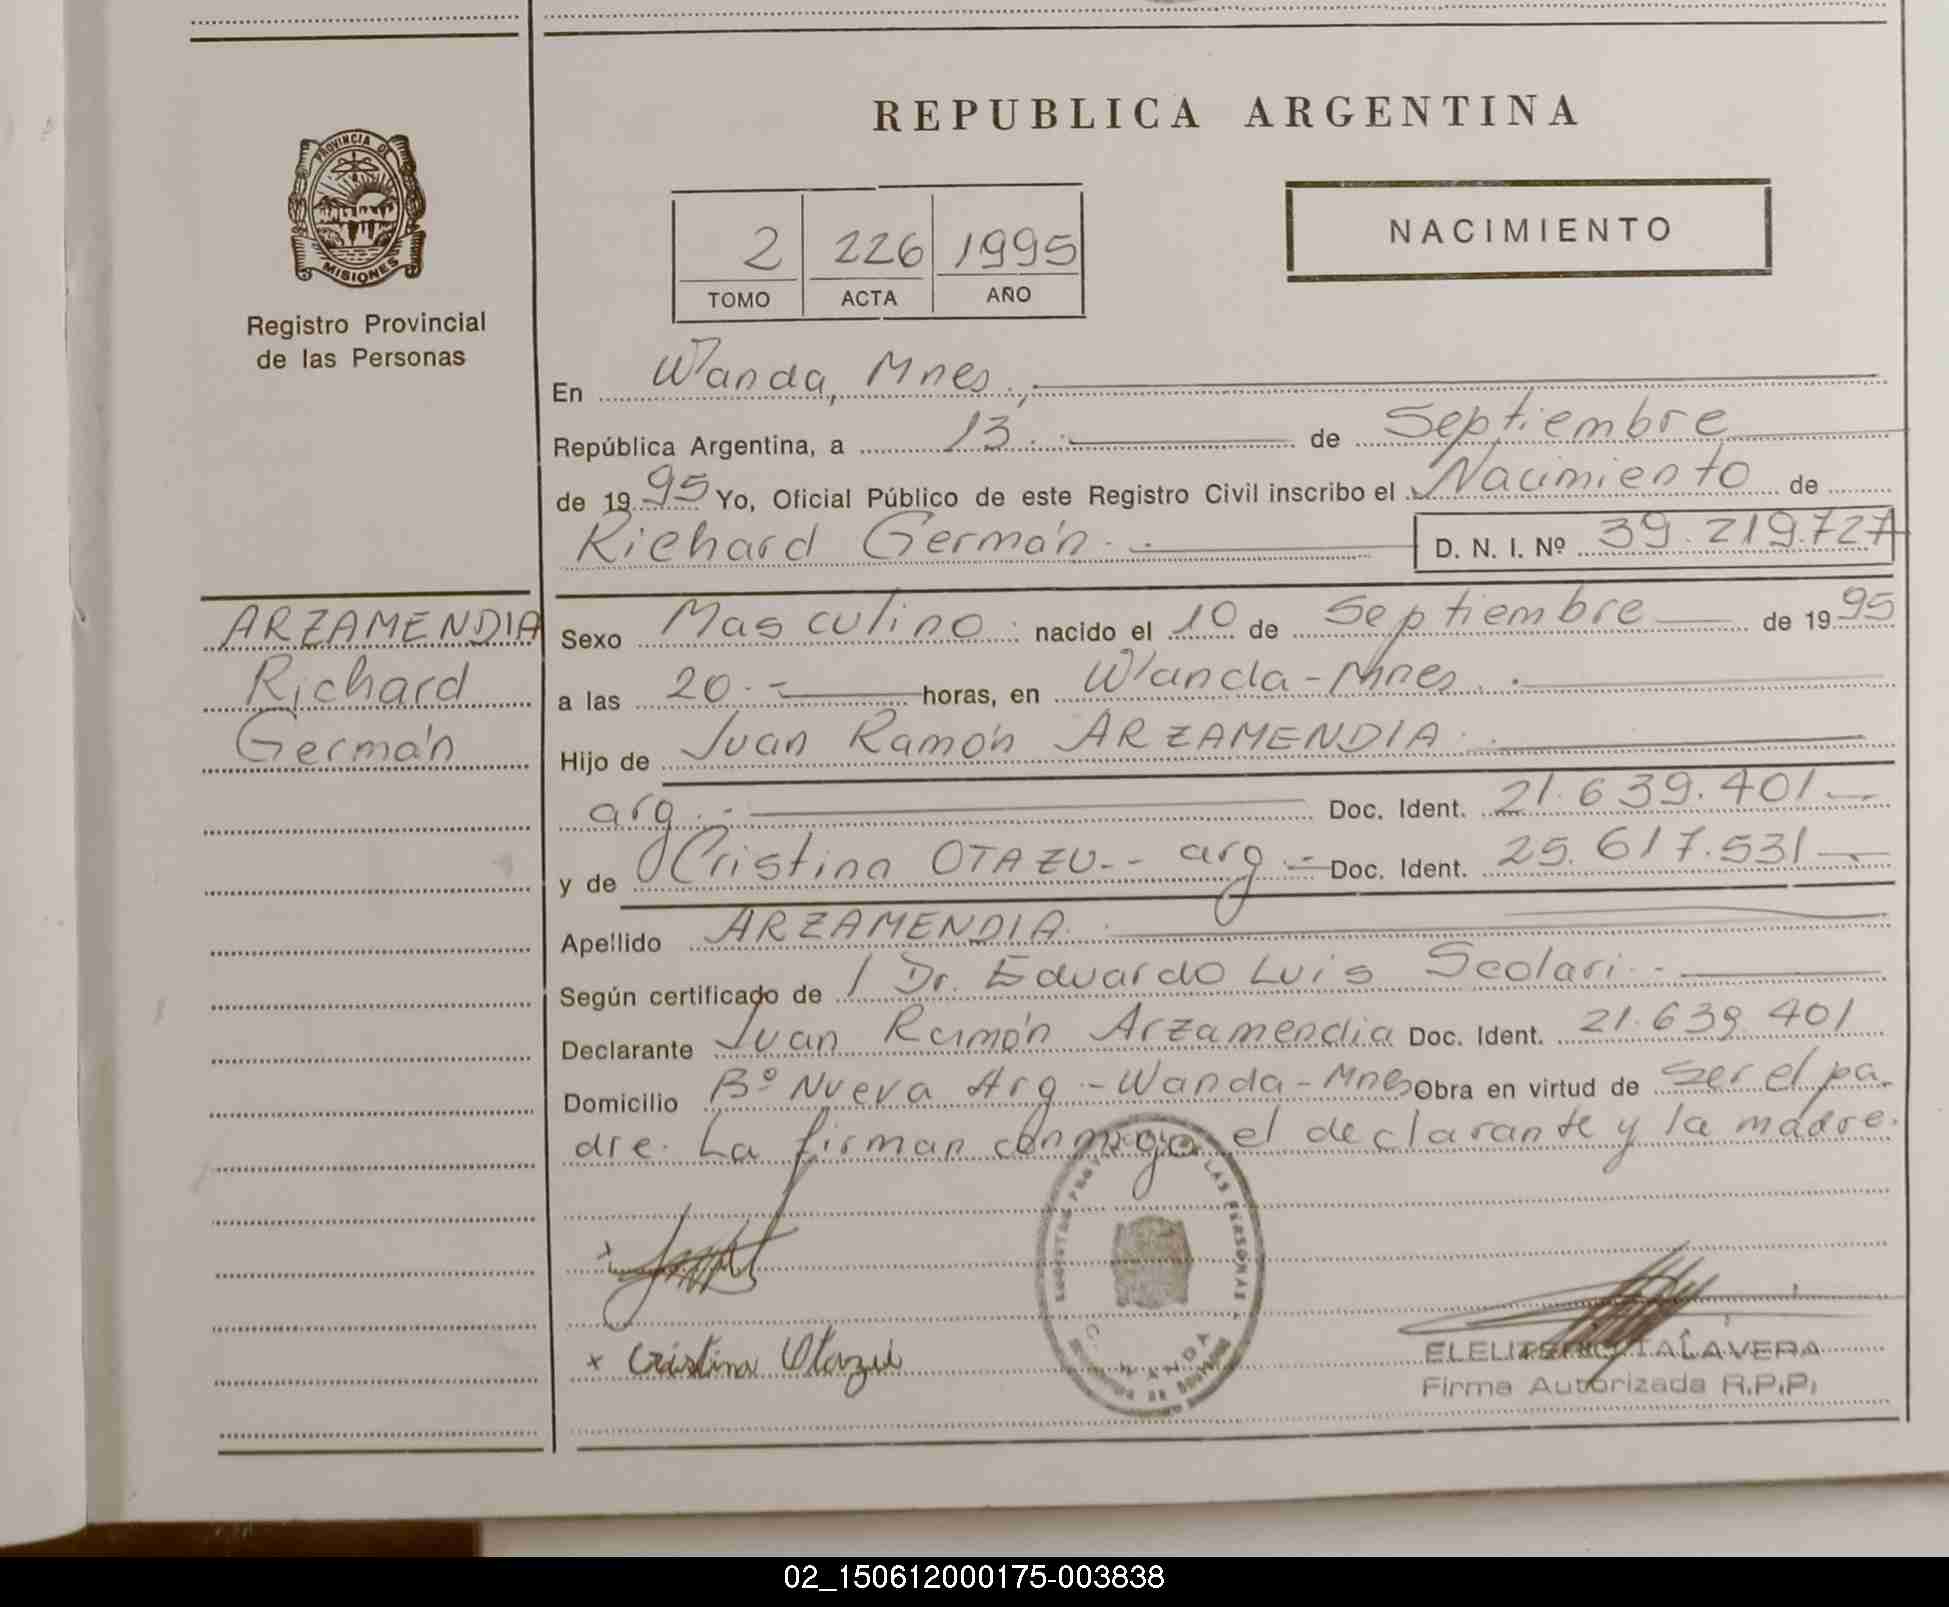 REPUBLICA ARGENTINA
PROVINCIA DE
MISIONES
Registro Provincial
de las Personas
2 226 1995
TOMO ACTA AÑO
NACIMIENTO
En Wanda, Mnes.,
República Argentina, a 13 de Septiembre
de 1995 Yo, Oficial Público de este Registro Civil inscribo el Nacimiento de
Richard Germán D. N. I. Nº 39.219.727
ARZAMENDIA
Richard
Germán
Sexo Masculino nacido el 10 de Septiembre de 1995
a las 20.- horas, en Wanda-Mnes.
Hijo de Juan Ramón ARZAMENDIA
arg.- Doc. Ident. 21.639.401
y de Cristina OTAZU.- arg.- Doc. Ident. 25.617.531
Apellido ARZAMENDIA
Según certificado de / Dr. Eduardo Luis Scolari.-
Declarante Juan Ramón Arzamendia Doc. Ident. 21.639.401
Domicilio Bº Nueva Arg.-Wanda-Mnes Obra en virtud de ser el pa-
dre. La firman conmigo el declarante y la madre.
x
x Cristina Otazú
LAS PERSONAS
WANDA
TALAVERA
Firma Autorizada R.P.P.
02_150612000175-003838